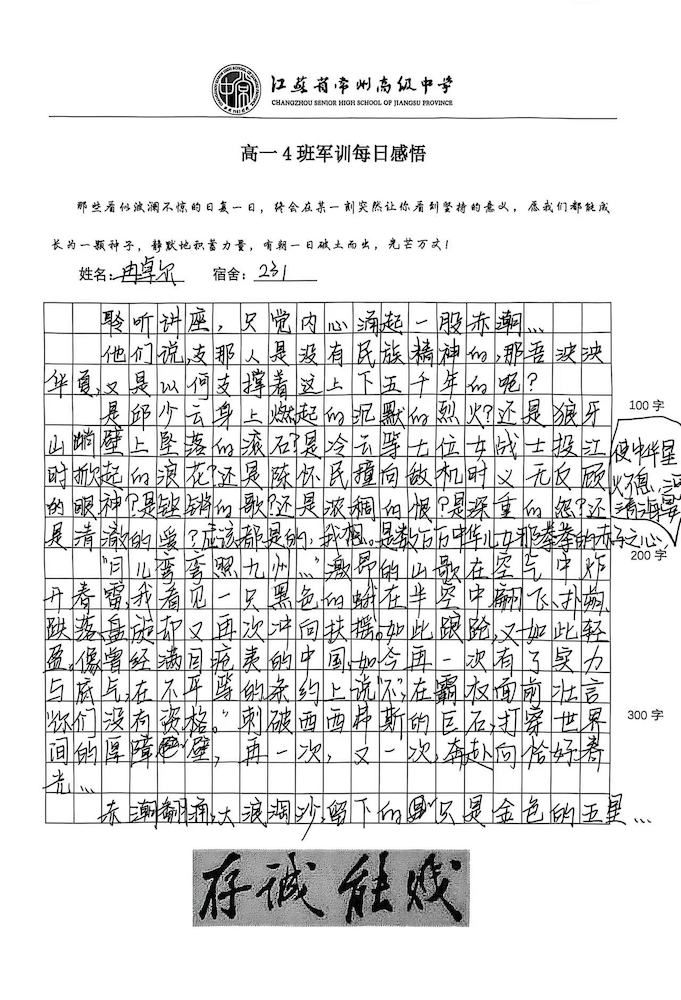 江苏省常州高级中学
CHANGZHOU SENIOR HIGH SCHOOL OF JIANGSU PROVINCE
高一4班军训每日感悟
那些看似波澜不惊的日复一日，终会在某一刻突然让你看到坚持的意义，愿我们都能成
长为一颗种子，静默地积蓄力量，有朝一日破土而出，光芒万丈！
姓名：冉卓尔 宿舍：231
聆听讲座，只觉内心涌起一股赤潮…
他们说，支那人是没有民族精神的，那吾泱泱
华夏，又是以何支撑着这上下五千年的呢？
是邱少云身上燃起的沉默的烈火？还是狼牙
100字
山峭壁上坠落的滚石？是冷云等七位女战士投江
时掀起的浪花？还是陈怀民撞向敌机时义无反顾
的眼神？是铿锵的歌？还是浓稠的恨？是深重的怨？还
是清澈的爱？应该都是的，我想。是数百万中华儿女那拳拳的赤子之心，
使中华星
火不息，
清海晏
200字
“月儿弯弯照九州…”激昂的山歌在空气中炸
开春雷，我看见一只黑色的蛾在半空中翩飞、扑朔、
跌落、盘旋却又再次冲向扶摇。如此踉跄，又如此轻
盈。像曾经满目疮夷的中国，如今再一次有了实力
与底气，在不平等的条约上说“不”，在霸权面前壮言
“你们没有资格。”刺破西西弗斯的巨石，打穿世界
300字
间的厚障壁，再一次，又一次，奔赴向恰好春
光…
赤潮翻涌，大浪淘沙，留下的只是金色的五星…
存诚能贱